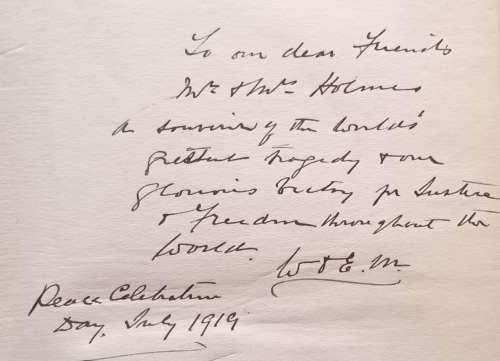 To our dear Friends
Mr & Mrs Holmes
a souvenir of the World's
greatest tragedy & our
glorious Victory for Justice
& Freedom throughout the
World.
W & E. M.
Peace Celebration
Day, July 1919